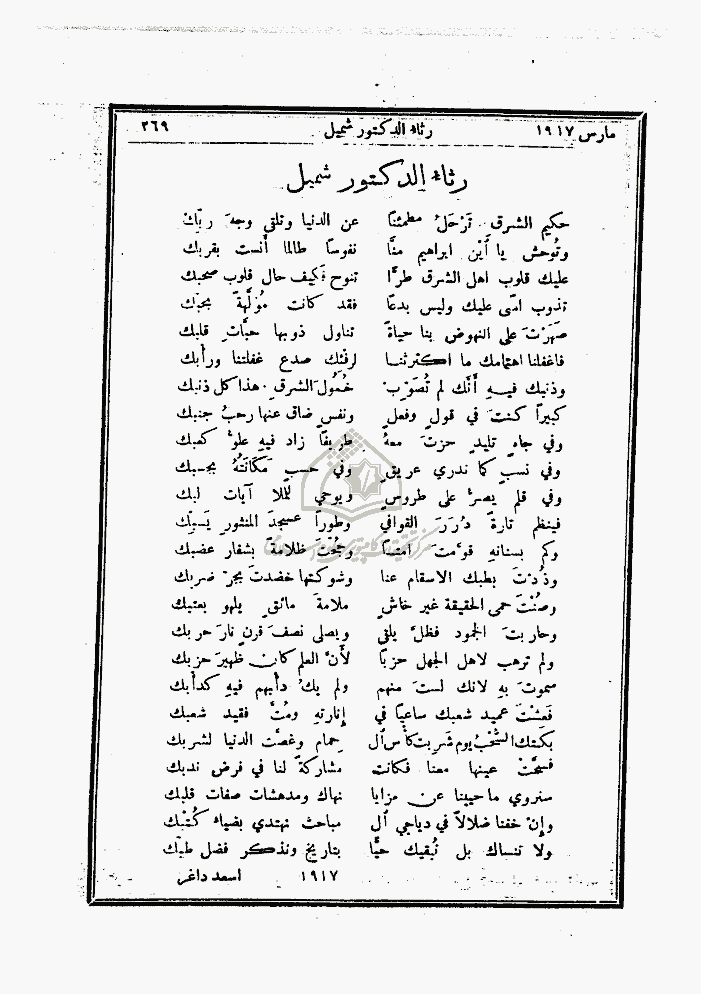 مارس ١٩١٧ رثاء الدكتور شميل ٣٦٩
رثاء الدكتور شميل
حكيم الشرق تَرْحَلُ مطمئنًّا عن الدنيا وتلقى وجهَ ربّك
وتُوحش يا أَبْن ابراهيم منَّا نفوسًا طالما أنست بقربك
عليك قلوب اهل الشرق طرًّا تنوح فكيف حال قلوب صحبك
تذوب اسًى عليك وليس بدعًا فقد كانت مُوَلَّهةً بحبّك
صَهَرْتَ على النهوض بنا حياةً تناول ذوبها حبَّاتِ قلبك
فاغفلنا اهتمامك ما اكترثنـا لرفئِك صدع غفلتنا ورأبك
وذنبك فيـهِ أَنَّك لم تُصَوّبْ خُمُولَ الشرقِ هذا كل ذنبك
كبيرًا كنتَ في قولٍ وفعلٍ ونفسٍ ضاق عنها رحبُ جنبك
وفي جاهٍ تليدٍ حزتَ معهُ طريفًا زاد فيهِ علوُّ كعبك
وفي نسبٍ كما ندري عريقٍ وفي حسبٍ مَكَانَتُهُ بجـبك
وفي قلمٍ يصرُّ على طروسٍ ويوحي للملا آيات لبك
فينظم تارةً دُرَرَ القوافي وطورًا عسجدَ المنثور يَسبِك
وكم بسنانهِ قوَّمتَ امتـًا وحجَّجْتَ ظلامةً بشفار عضبك
وذُدْتَ بطبك الاسقام عنا وشوكتها خضدتَ بحرّ ضربك
وصُنْتَ حمى الحقيقة غير خاشٍ ملامةَ مائقٍ يلهو بعتبك
وحاربتَ الجمود فظلَّ يلقى ويصلى نصفَ قرنٍ نارَ حربك
ولم ترهب لاهل الجهل حزبًا لأنَّ العلم كان ظهيرَ حزبك
سموتَ بهِ لانك لست منهم ولم يكُ دأبهم فيهِ كدأبك
فَعِشْتَ عميد شعبك ساعيًا في إنارتهِ ومُتَّ فقيد شعبك
بكتك السُّحْبُ يوم شربت كأس الْ حِمام وغصَّت الدنيا لشربك
فسحَّتْ عينها معنا فكانت مشاركةً لنا في فرض ندبك
سنروي ما حيينا عن مزايا نهاك ومدهشات صفات قلبك
وإِنْ خفنا ضلالاً في دياجي الْ مباحث نهتدي بضياء كُتْبك
ولا تنساك بل نُبقيك حيًّا بتاريخ ونذكر فضل طبّك
١٩١٧ اسعد داغر